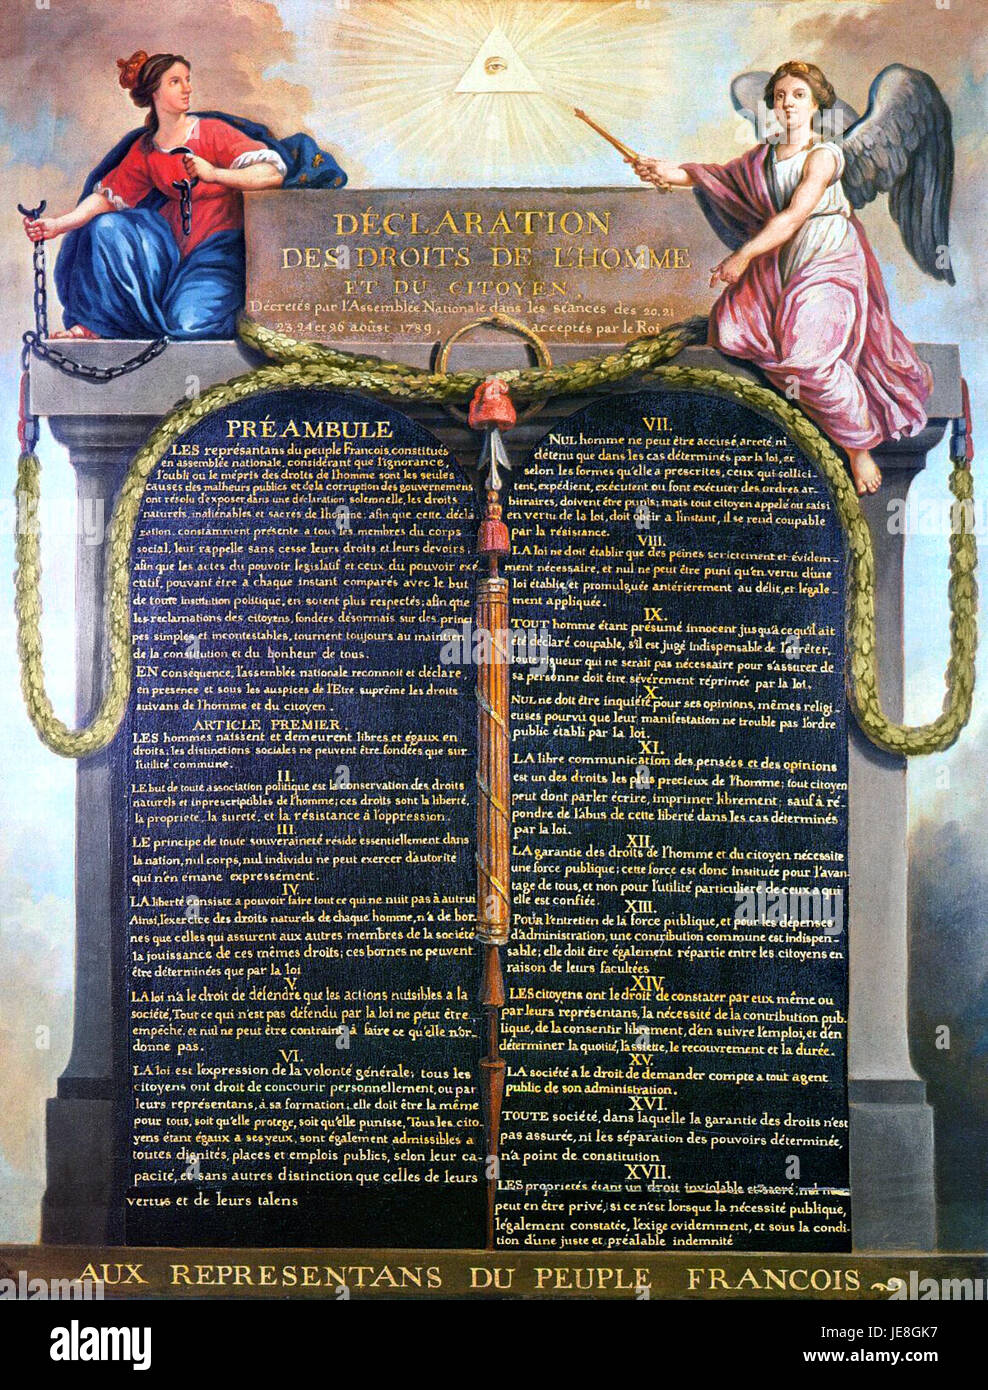 DÉCLARATION
DES DROITS DE L'HOMME
ET DU CITOYEN,
Décretés par l'Assemblée Nationale dans les séances des 20. 21
23. 24 et 26 aoûst 1789, acceptés par le Roi
PRÉAMBULE
LES représantans du peuple Francois, constitués
en assemblée nationale, considérant que l'ignorance,
l'oubli ou le mépris des droits de l'homme sont les seules
causes des malheurs publics et de la corruption des gouvernemens
ont résolu d'exposer, dans une déclaration solemnelle, les droits
naturels, inaliénables et sacrés de l'homme; afin que cette décla
ration, constamment présente a tous les membres du corps
social, leur rappelle sans cesse leurs droits et leurs devoirs;
afin que les actes du pouvoir législatif et ceux du pouvoir exé
cutif, pouvant être a chaque instant comparés avec le but
de toute institution politique, en soient plus respectés; afin que
les reclamations des citoyens, fondées désormais sur des princi
pes simples et incontestables, tournent toujours au maintien
de la constitution et du bonheur de tous.
EN conséquence, l'assemblée nationale reconnoit et déclare,
en presence et sous les auspices de l'Etre suprême les droits
suivans de l'homme et du citoyen.
ARTICLE PREMIER.
LES hommes naissent et demeurent libres et égaux en
droits. les distinctions sociales ne peuvent être fondées que sur
l'utilité commune.
II.
LE but de toute association politique est la conservation des droits
naturels et inprescriptibles de l'homme; ces droits sont la liberté,
la proprieté, la sureté, et la résistance à l'oppression.
III.
LE principe de toute souveraineté réside essentiellement dans
la nation, nul corps, nul individu ne peut exercer d'autorité
qui n'en emane expressement.
IV.
LA liberté consiste a pouvoir faire tout ce qui ne nuit pas à autrui
Ainsi, l'exercice des droits naturels de chaque homme, n'a de bor-
nes que celles qui assurent aux autres membres de la société
la jouissance de ces mêmes droits; ces bornes ne peuvent
être déterminées que par la loi
V.
LA loi n'a le droit de défendre que les actions nuisibles a la
société, Tout ce qui n'est pas défendu par la loi ne peut être
empêché, et nul ne peut être contraint à faire ce qu'elle n'or-
donne pas.
VI.
LA loi est l'expression de la volonté générale; tous les
citoyens ont droit de concourir personnellement, ou par
leurs représentans, à sa formation; elle doit être la même
pour tous, soit qu'elle protege, soit qu'elle punisse, Tous les cito-
yens étant égaux a ses yeux, sont également admissibles a
toutes dignités, places et emplois publics, selon leur ca-
pacité, et sans autres distinction que celles de leurs
vertus et de leurs talens
VII.
NUL homme ne peut être accusé, arreté, ni
détenu que dans les cas déterminés par la loi, et
selon les formes qu'elle a prescrites, ceux qui sollici-
tent, expédient, exécutent ou font exécuter des ordres ar-
bitraires, doivent être punis; mais tout citoyen appelé ou saisi
en vertu de la loi, doit obéir a l'instant, il se rend coupable
par la résistance.
VIII.
LA loi ne doit établir que des peines strictement et évidem-
ment nécessaire, et nul ne peut être puni qu'en vertu d'une
loi établie et promulguée antérierement au délit, et légale-
ment appliquée.
IX.
TOUT homme étant présumé innocent jusqu'a ce qu'il ait
été déclaré coupable, s'il est jugé indispensable de l'arrêter,
toute rigueur qui ne serait pas nécessaire pour s'assurer de
sa personne doit être sévèrement réprimée par la loi.
X.
NUL ne doit être inquiété pour ses opinions, mêmes religi-
euses pourvu que leur manifestation ne trouble pas l'ordre
public établi par la loi.
XI.
LA libre communication des pensées et des opinions
est un des droits les plus precieux de l'homme; tout citoyen
peut dont parler écrire, imprimer librement; sauf à ré-
pondre de l'abus de cette liberté dans les cas déterminés
par la loi.
XII.
LA garantie des droits de l'homme et du citoyen nécessite
une force publique; cette force est donc instituée pour l'avan-
tage de tous, et non pour l'utilité particuliere de ceux a qui
elle est confiée.
XIII.
POUR l'entretien de la force publique, et pour les dépenses
d'administration, une contribution commune est indispen-
sable; elle doit être également répartie entre les citoyens en
raison de leurs facultées
XIV.
LES citoyens ont le droit de constater par eux même ou
par leurs représentans, la nécessité de la contribution pub-
lique, de la consentir librement, d'en suivre l'emploi, et d'en
déterminer la quotité, l'assiette, le recouvrement et la durée.
XV.
LA société a le droit de demander compte a tout agent
public de son administration.
XVI.
TOUTE société, dans laquelle la garantie des droits n'est
pas assurée, ni les séparation des pouvoirs déterminée,
n'a point de constitution
XVII.
LES proprietés étans un droit inviolable et sacré, nul ne
peut en être privé, si ce n'est lorsque la nécessité publique,
légalement constatée, l'exige evidemment, et sous la condi
tion d'une juste et préalable indemnité
AUX REPRESENTANS DU PEUPLE FRANCOIS
alamy
JE8GK7
www.alamy.com